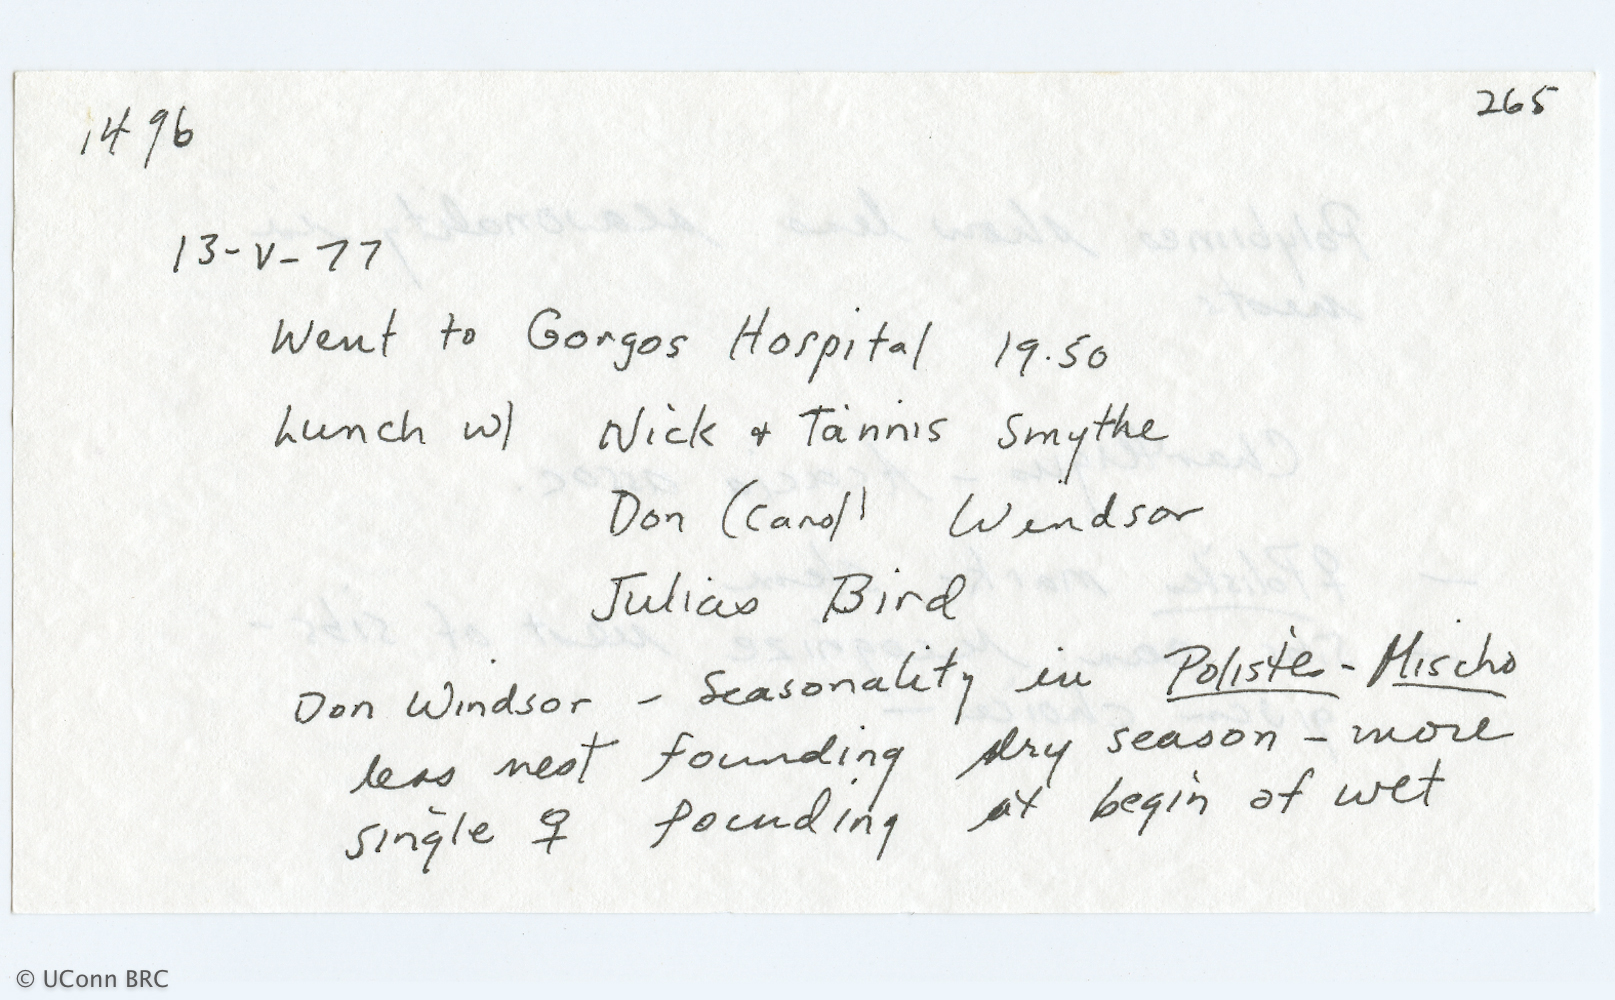 1496
265
13-V-77
Went to Gorgos Hospital 19.50
Lunch w/ Nick + Tannis Smythe
Don (Carol) Windsor
Julias Bird
Don Windsor - Seasonality in Poliste - Mischo
less nest founding dry season - more
single ♀ founding at begin of wet
© UConn BRC